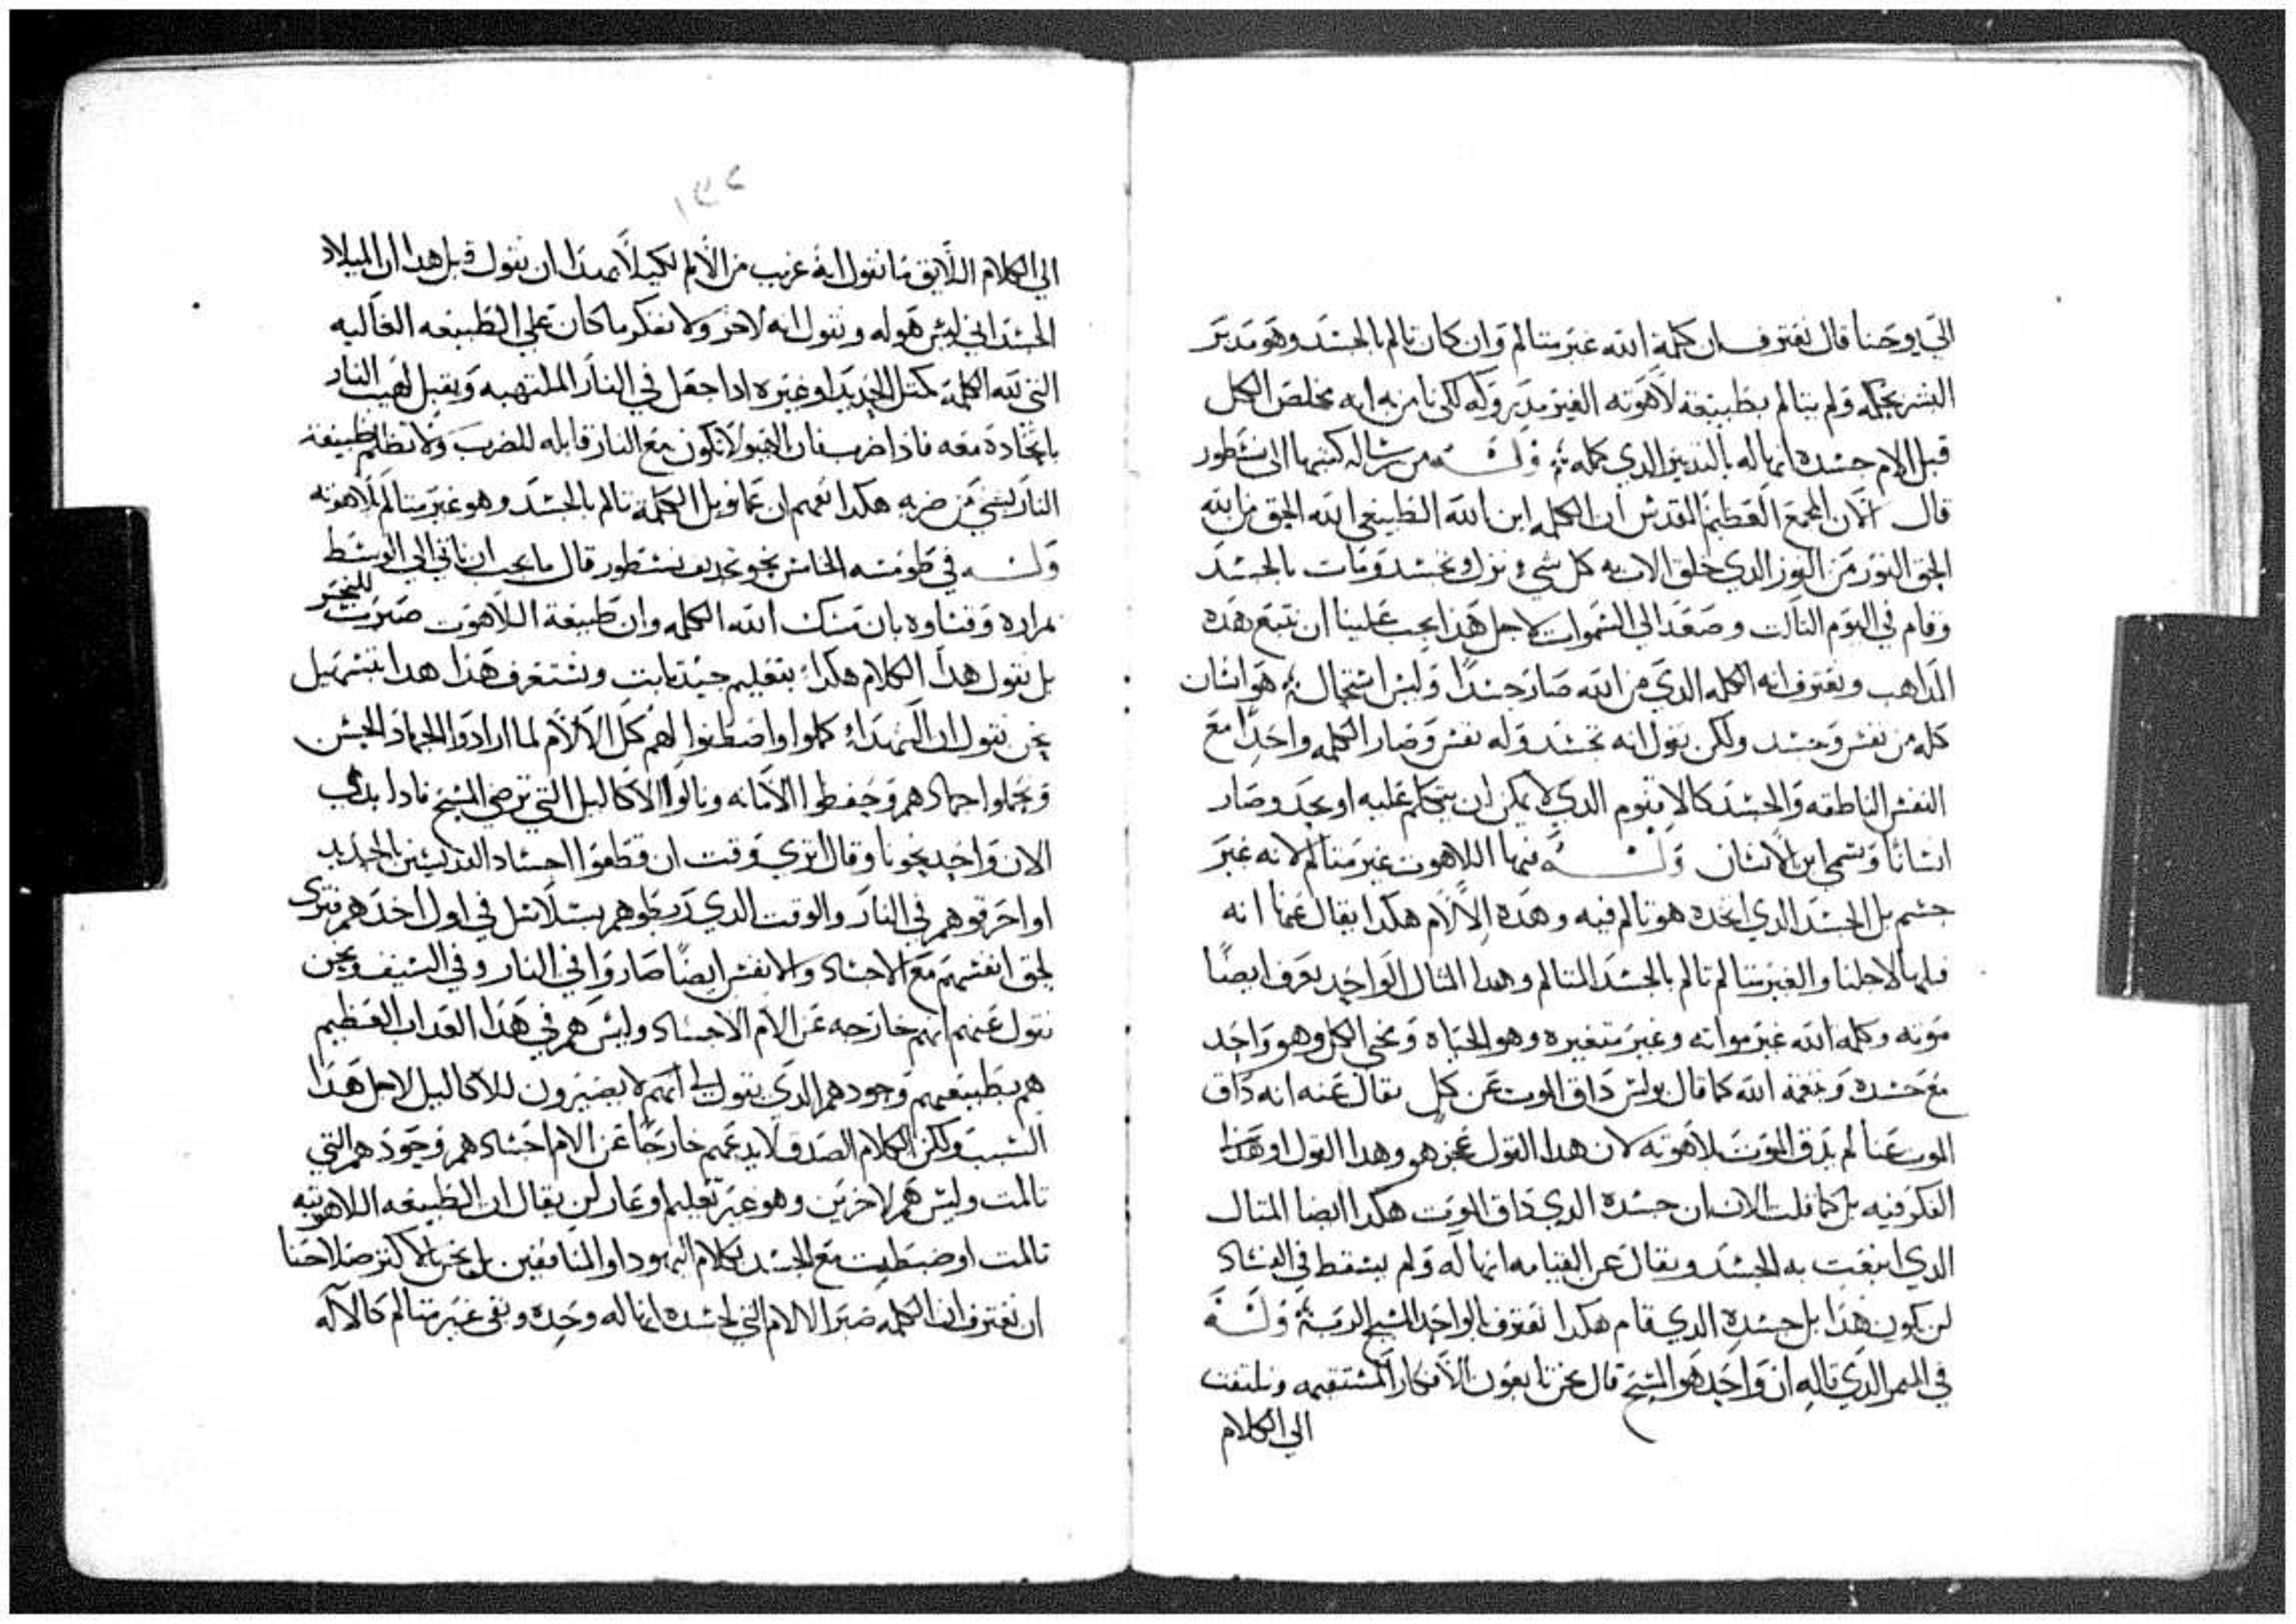 الي يوحنا قال نعترف بان كلمة الله غير متالم وان كان تالم بالجسد وهو مدبر
السر بحكمه ولم يتالم بطبيعة لاهوته الغير مدبر وله لكي نامن به انه مخلص الكل
قبل الام جسده انها له بالتدبير الدي كمله وله من رساله كتبها الى نسطور
قال الان المجمع العظيم المقدس ان الكلمه ابن الله الطبيعي اله الحق من اله
الحق النور من النور الدي خلق الاب به كل شي نزل وتجسد ومات بالجسد
وقام في اليوم التالت وصعد الى السموات لاجل هدا يجب علينا ان نتبع هده
المداهب ونعترف انه الكلمه الدي من الله صار جسدا وليس استحال هو انسان
كله من نفس وجسد ولكن نقول انه تجسد وله نفس وصار الكلمه واحدا مع
النفس الناطقه والجسد كالاقنوم الدي لا يمكن ان يتكلم عليه او يحد وصار
انسانا وسمي ابن الانسان وله فيها اللاهوت غير متالم لانه غير
جسم بل الجسد الدي اتخده هو تالم فيه وهده الالام هكدا يقال عنها انه
قبلها لاجلنا والغير متالم تالم بالجسد المتالم وهدا المتال الواحد نعرف ايضا
موته وكلمه الله غير مواته وغير متغيره وهو الحياه ومحي الكل وهو واحد
مع جسده ونعمه الله كما قال بولس داق الموت عن كل يقال عنه انه داق
الموت عنا لم يدق الموت بلاهوته لان هدا القول عجز هو وهدا القول او هدا
الفكر فيه بل كما قلت الان ان جسده الدي داق الموت هكدا ايضا المتال
الدي انبعت به الجسد ويقال عن القيامه انها له ولم يسقط في الفساد
لن يكون هدا بل جسده الدي قام هكدا نعترف بالواحد المسيح الرب وله
في الميمر الدي قاله ان واحد هو المسيح قال نحن تابعون الافكار المستقيمه ونلتفت
الي الكلام
الي الكلام اللايق ما نقول انه غريب من الالم لكيلا نبتدا ان نقول قبل هدا ان الميلاد
الجسداني ليس هو له ونقول انه لاخر ولا نفكر ما كان على الطبيعه العاليه
التي لله الكلمه كمتل الحديد او غيره ادا جعل في النار الملتهبه ويقبل لهيب النار
باتحاده معه فادا ضرب فان الهيولا تكون مع النار قابله للضرب ولا تظلم طبيعة
النار بشي من ضربه هكدا نفهم ان عمانويل الكلمه تالم بالجسد وهو غير متالم بلاهوته
وله في طومسه الخامس نحو تجديف نسطور قال ما يجب ان ناتي الي الوسط
بمراره وقساوه بان متنك الله الكلمه وان طبيعة اللاهوت صبرت للنجر
بل نقول هدا الكلام هكدا بتعليم جيد تابت ونستعرف هدا هدا بتسهيل
نحن نقول ان الشهداء كملوا واضطنوا لهم كل الالام لما ارادوا الجهاد الحسن
وكملوا جهادهم وحفطوا الامانه ونالوا الاكاليل التي ترضي المسيح فادا بدي
الان واحد نحونا وقال اتري وقت ان قطعوا اجساد القديسين بالحديد
او احرقوهم في النار والوقت الدي ربطوهم بسلاسل في اول اخدهم فترى
لحق انفسهم مع الاجساد والانفس ايضا صاروا في النار وفي السيف ونحن
نقول عنهم انهم خارجه عن الام الاجساد وليس هم في هدا العداب العظيم
هم بطبيعتهم وجودهم الدي يقول لي انهم لا يصيرون للاكاليل لاجل هدا
السبب ولكن الكلام الصدق لا يدعهم خارجا عن الام اجسادهم وجودهم التي
تالمت وليس هم لاخرين وهو غير تعليم او عار لمن يقال ان الطبيعه اللاهوتيه
تالمت او ضبطت مع الجسد بكلام اليهود او المنافقين بل نحن بالاكتر صلاحنا
ان نعترف ان الكلمه صبر الالام التي لجسده انها له وحده وبقي غير متالم كالاله